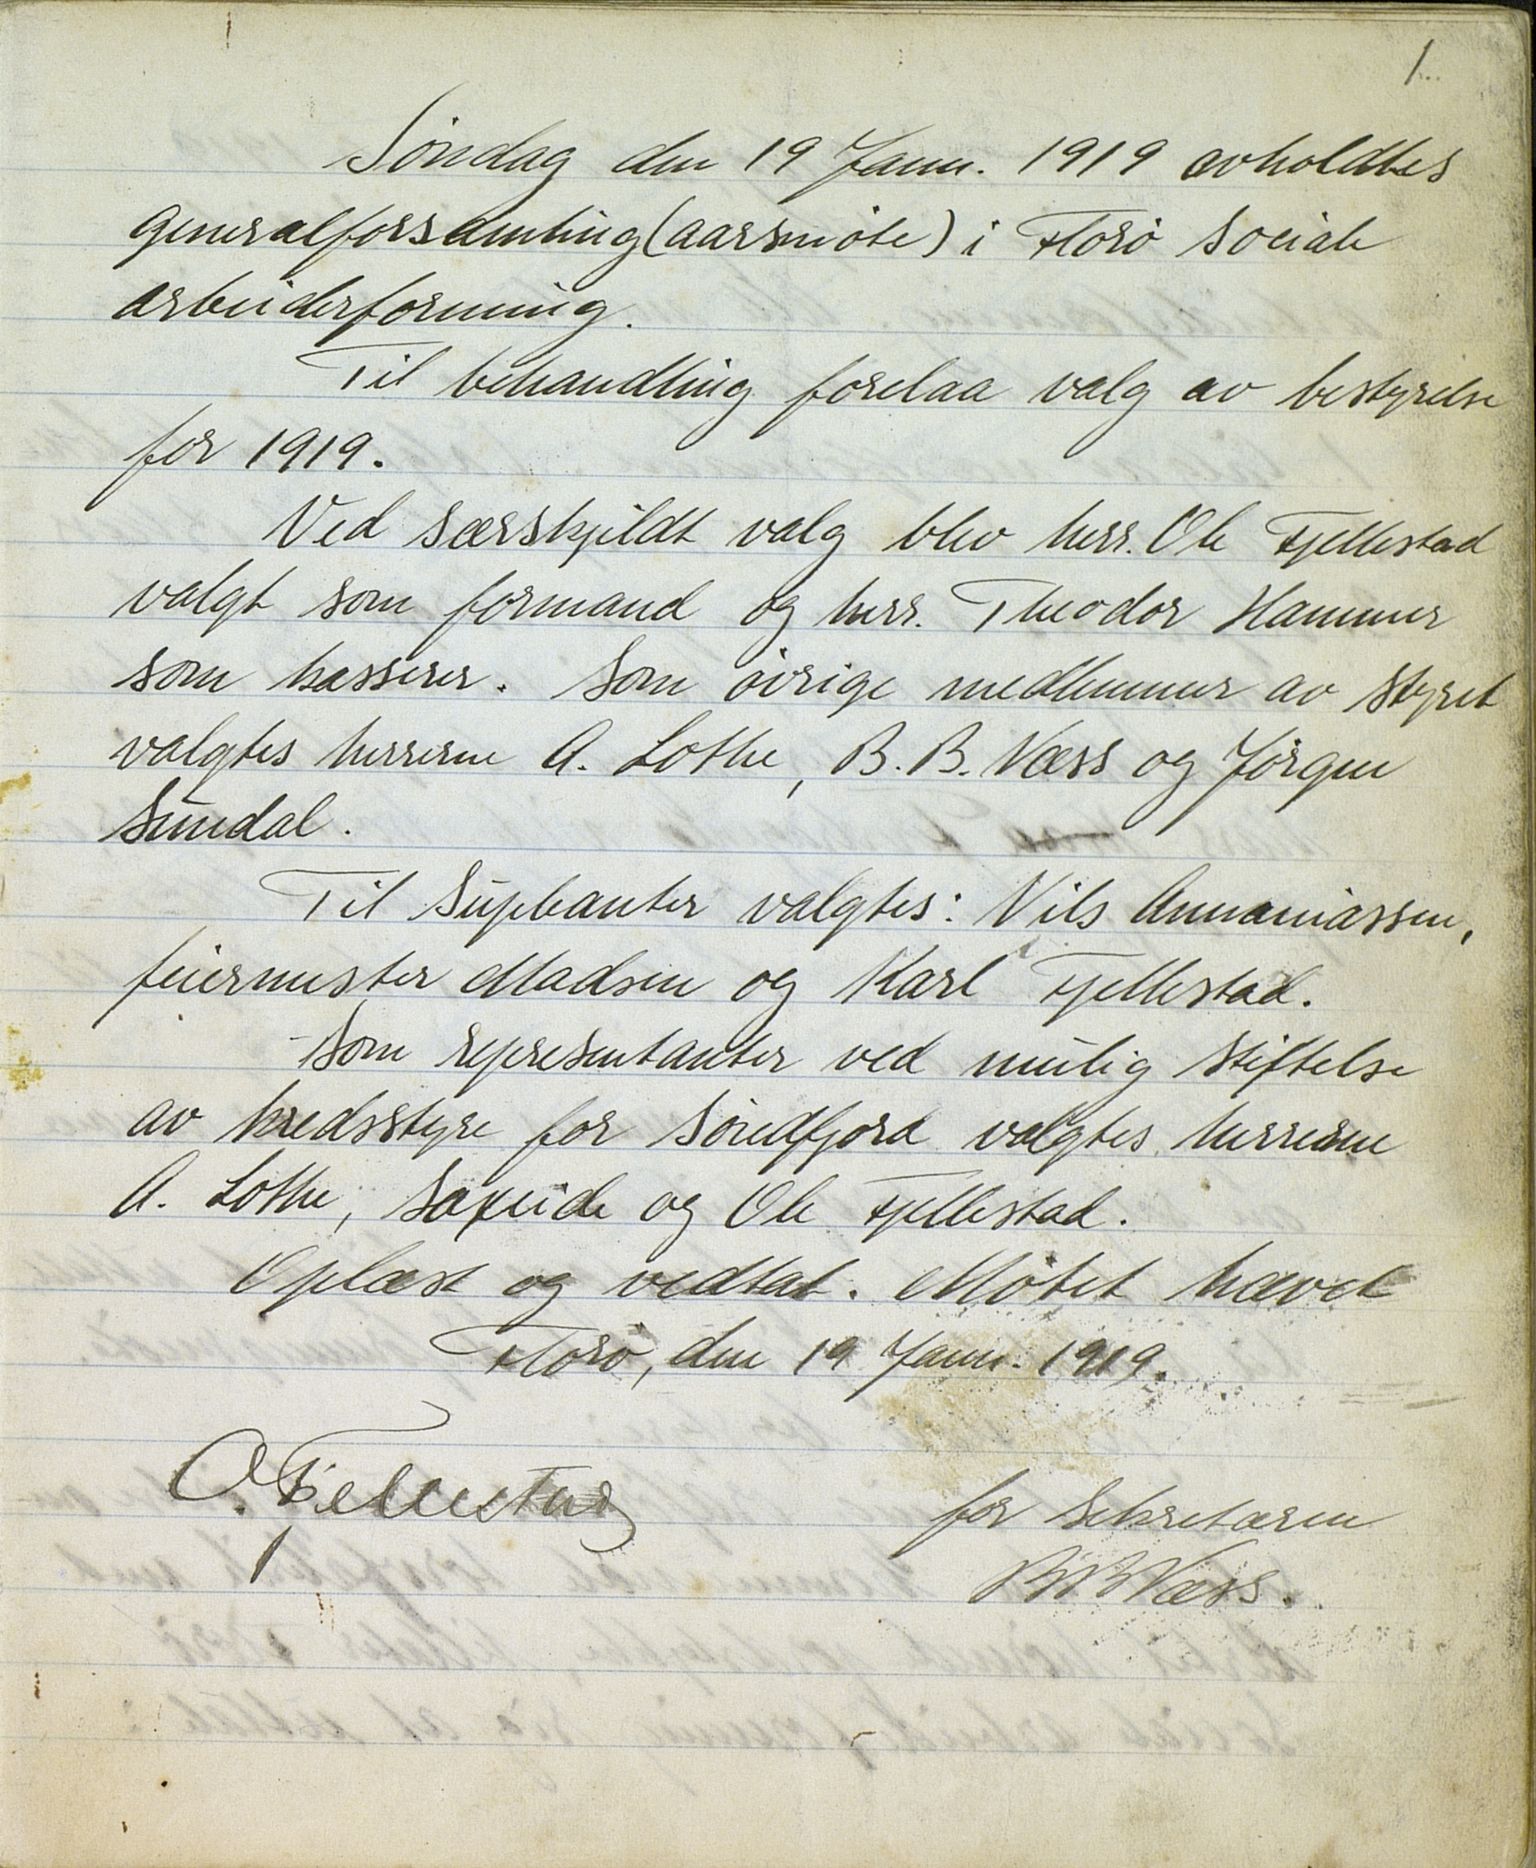 1.
Søndag den 19 Janu. 1919 avholdtes
generalforsamling (aarsmøte) i Florø sociale
arbeiderforening.
Til behandling forelaa valg av bestyrelse
for 1919.
Ved særskjildt valg blev herr. Ole Fjellestad
valgt som formand og herr. Theodor Hammer
som kasserer. Som øvrige medlemmer av styret
valgtes herrerne A. Lothe, B. B. Næss og Jørgen
Sundal.
Til supleanter valgtes: Nils Annaniassen,
feiermester Madsen og Karl Fjellestad.
Som representanter ved mulig stiftelse
av kredsstyre for Søndfjord valgtes herrerne
A. Lothe, Saxeide og Ole Fjellestad.
Oplæst og vedtat. Møtet hævet
Florø, den 19 Janu. 1919.
O. Fjellestad
for sekretæren
B B Næss.